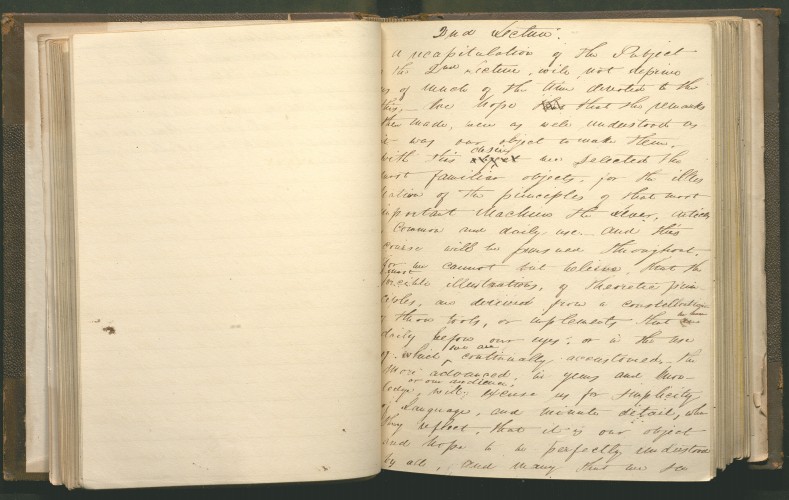 2nd Lecture.
A recapitulation of the Subject
the 2nd Lecture, will not deprive
us of much of the time devoted to the
this,- We hope that the remarks
then made, were as well understood as
it was our object to make them.
With this design we selected the
most familiar objects, for the illus
tration of the principles of that most
important Machine the Lever, articles
common and daily use. And this
course will be pursued throughout.
For we cannot but believe, that the
most
forcible illustrations, of theoretic prin
ciples, are derived from a
of those tools, or implements that we have
daily before our eyes; or in the use
of which we are continually accustomed. The
more advanced, in years and know
of our audience,
ledge, will; excuse us for simplicity
of language, and minute detail, when
they reflect, that it is our object
and hope to be perfectly understood
by all, And many that we see